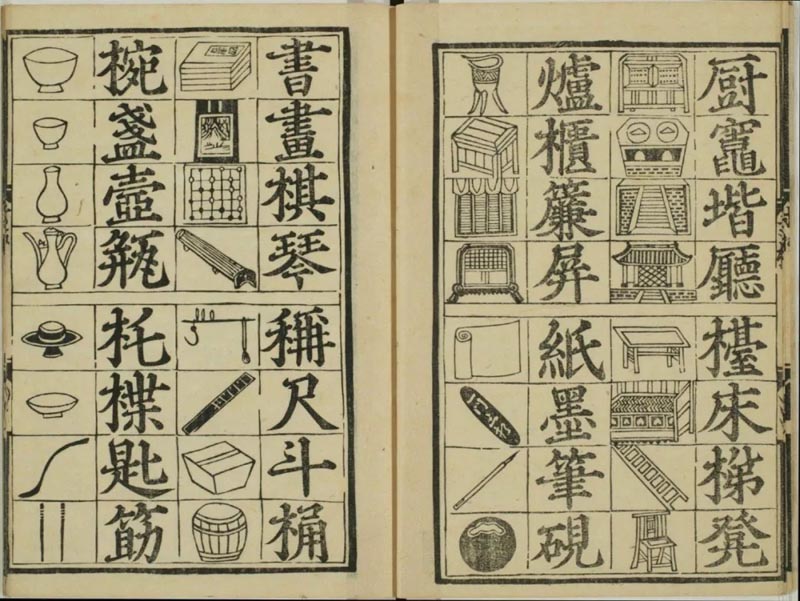 厨竈堦廳檯床梯凳
爐櫃簾屏紙墨筆硯
書畫棋琴稱尺斗桶
椀盞壺瓶杔楪匙筯